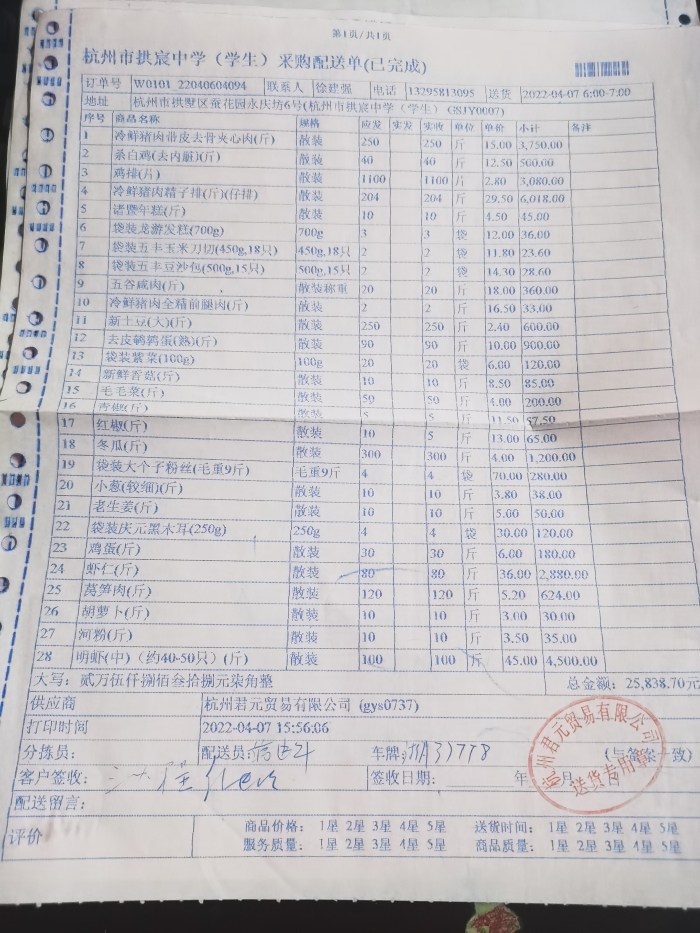 第1页/共1页
杭州市拱宸中学（学生）采购配送单(已完成)
订单号 W0101_22040604094 联系人 徐建强 电话 13295813095 送货 2022-04-07 6:00-7:00
地址 杭州市拱墅区蚕花园永庆坊6号(杭州市拱宸中学（学生）GSJY0007)
序号 商品名称 规格 应发 实发 实收 单位 单价 小计 备注
1 冷鲜猪肉带皮去骨夹心肉(斤) 散装 250 250 斤 15.00 3,750.00
2 杀白鸡(去内脏)(斤) 散装 40 40 斤 12.50 500.00
3 鸡排(片) 散装 1100 1100 片 2.80 3,080.00
4 冷鲜猪肉精子排(斤)(仔排) 散装 204 204 斤 29.50 6,018.00
5 诸暨年糕(斤) 散装 10 10 斤 4.50 45.00
6 袋装龙游发糕(700g) 700g 3 3 袋 12.00 36.00
7 袋装五丰玉米刀切(450g,18只) 450g,18只 2 2 袋 11.80 23.60
8 袋装五丰豆沙包(500g,15只) 500g,15只 2 2 袋 14.30 28.60
9 五谷咸肉(斤) 散装称重 20 20 斤 18.00 360.00
10 冷鲜猪肉全精前腿肉(斤) 散装 2 2 斤 16.50 33.00
11 新土豆(大)(斤) 散装 250 250 斤 2.40 600.00
12 去皮鹌鹑蛋(熟)(斤) 散装 90 90 斤 10.00 900.00
13 袋装紫菜(100g) 100g 20 20 袋 6.00 120.00
14 新鲜香菇(斤) 散装 10 10 斤 8.50 85.00
15 毛毛菜(斤) 散装 50 50 斤 4.00 200.00
16 青椒(斤) 散装 5 5 斤 11.50 57.50
17 红椒(斤) 散装 10 5 斤 13.00 65.00
18 冬瓜(斤) 散装 300 300 斤 4.00 1,200.00
19 袋装大个子粉丝(毛重9斤) 毛重9斤 4 4 袋 70.00 280.00
20 小葱(较细)(斤) 散装 10 10 斤 3.80 38.00
21 老生姜(斤) 散装 10 10 斤 5.00 50.00
22 袋装庆元黑木耳(250g) 250g 4 4 袋 30.00 120.00
23 鸡蛋(斤) 散装 30 30 斤 6.00 180.00
24 虾仁(斤) 散装 80 80 斤 36.00 2,880.00
25 莴笋肉(斤) 散装 120 120 斤 5.20 624.00
26 胡萝卜(斤) 散装 10 10 斤 3.00 30.00
27 河粉(斤) 散装 10 10 斤 3.50 35.00
28 明虾(中)（约40-50只）(斤) 散装 100 100 斤 45.00 4,500.00
大写：贰万伍仟捌佰叁拾捌元柒角整 总金额：25,838.70元
供应商 杭州君元贸易有限公司 (gys0737)
打印时间 2022-04-07 15:56:06
分拣员： 配送员： 车牌： （与备案一致）
客户签收： 签收日期： 年 月
杭州君元贸易有限公司
送货专用章
配送留言：
评价 商品价格： 1星 2星 3星 4星 5星 送货时间： 1星 2星 3星 4星 5星
服务质量： 1星 2星 3星 4星 5星 商品质量： 1星 2星 3星 4星 5星